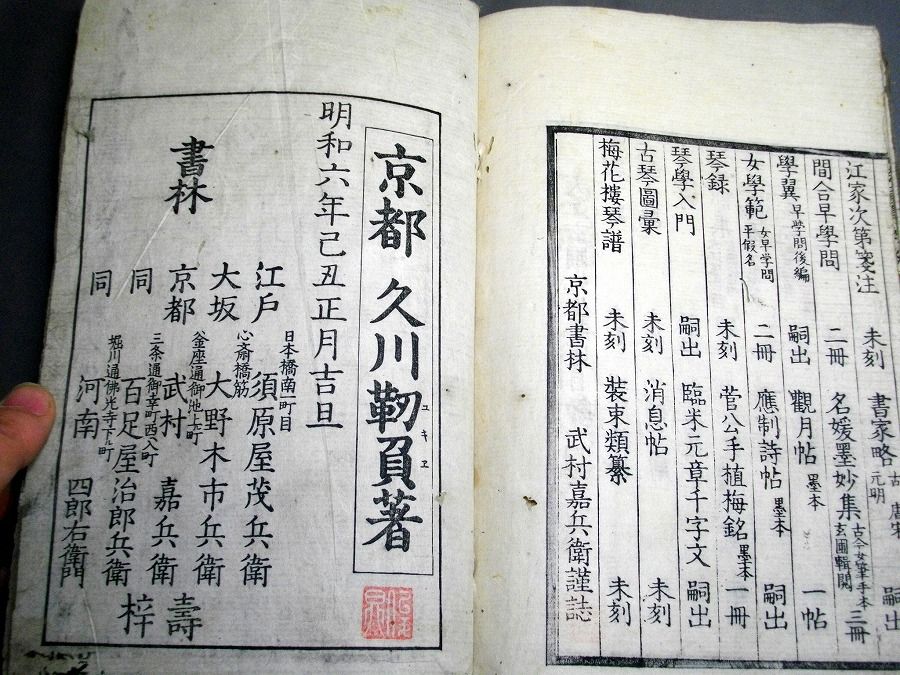 書家略 古 唐宋 元明 嗣出
江家次第箋注 未刻 名媛墨妙集 古今女筆手本 玄圃輯閲 三冊
間合早學問 二冊 觀月帖 墨本 一帖
學翼 早學問後編 嗣出 應制詩帖 墨本 嗣出
女學範 女早学問 平假名 二冊 菅公手植梅銘 墨本 一冊
琴録 未刻 臨米元章千字文 嗣出
琴學入門 嗣出 消息帖 未刻
古琴圖彙 未刻 裝束類纂 未刻
梅花樓琴譜 未刻
京都書林 武村嘉兵衛謹誌
京都 久川靭負著
ユキヱ
明和六年己丑正月吉旦
日本橋南一町目
江戸 須原屋茂兵衛
心斎橋筋
大坂 大野木市兵衛
釜座通御池上町
京都 武村嘉兵衛
三条通御幸町西入町
同 百足屋治郎兵衛
堀川通佛光寺下ル町
同 河南四郎右衛門
書林
壽梓